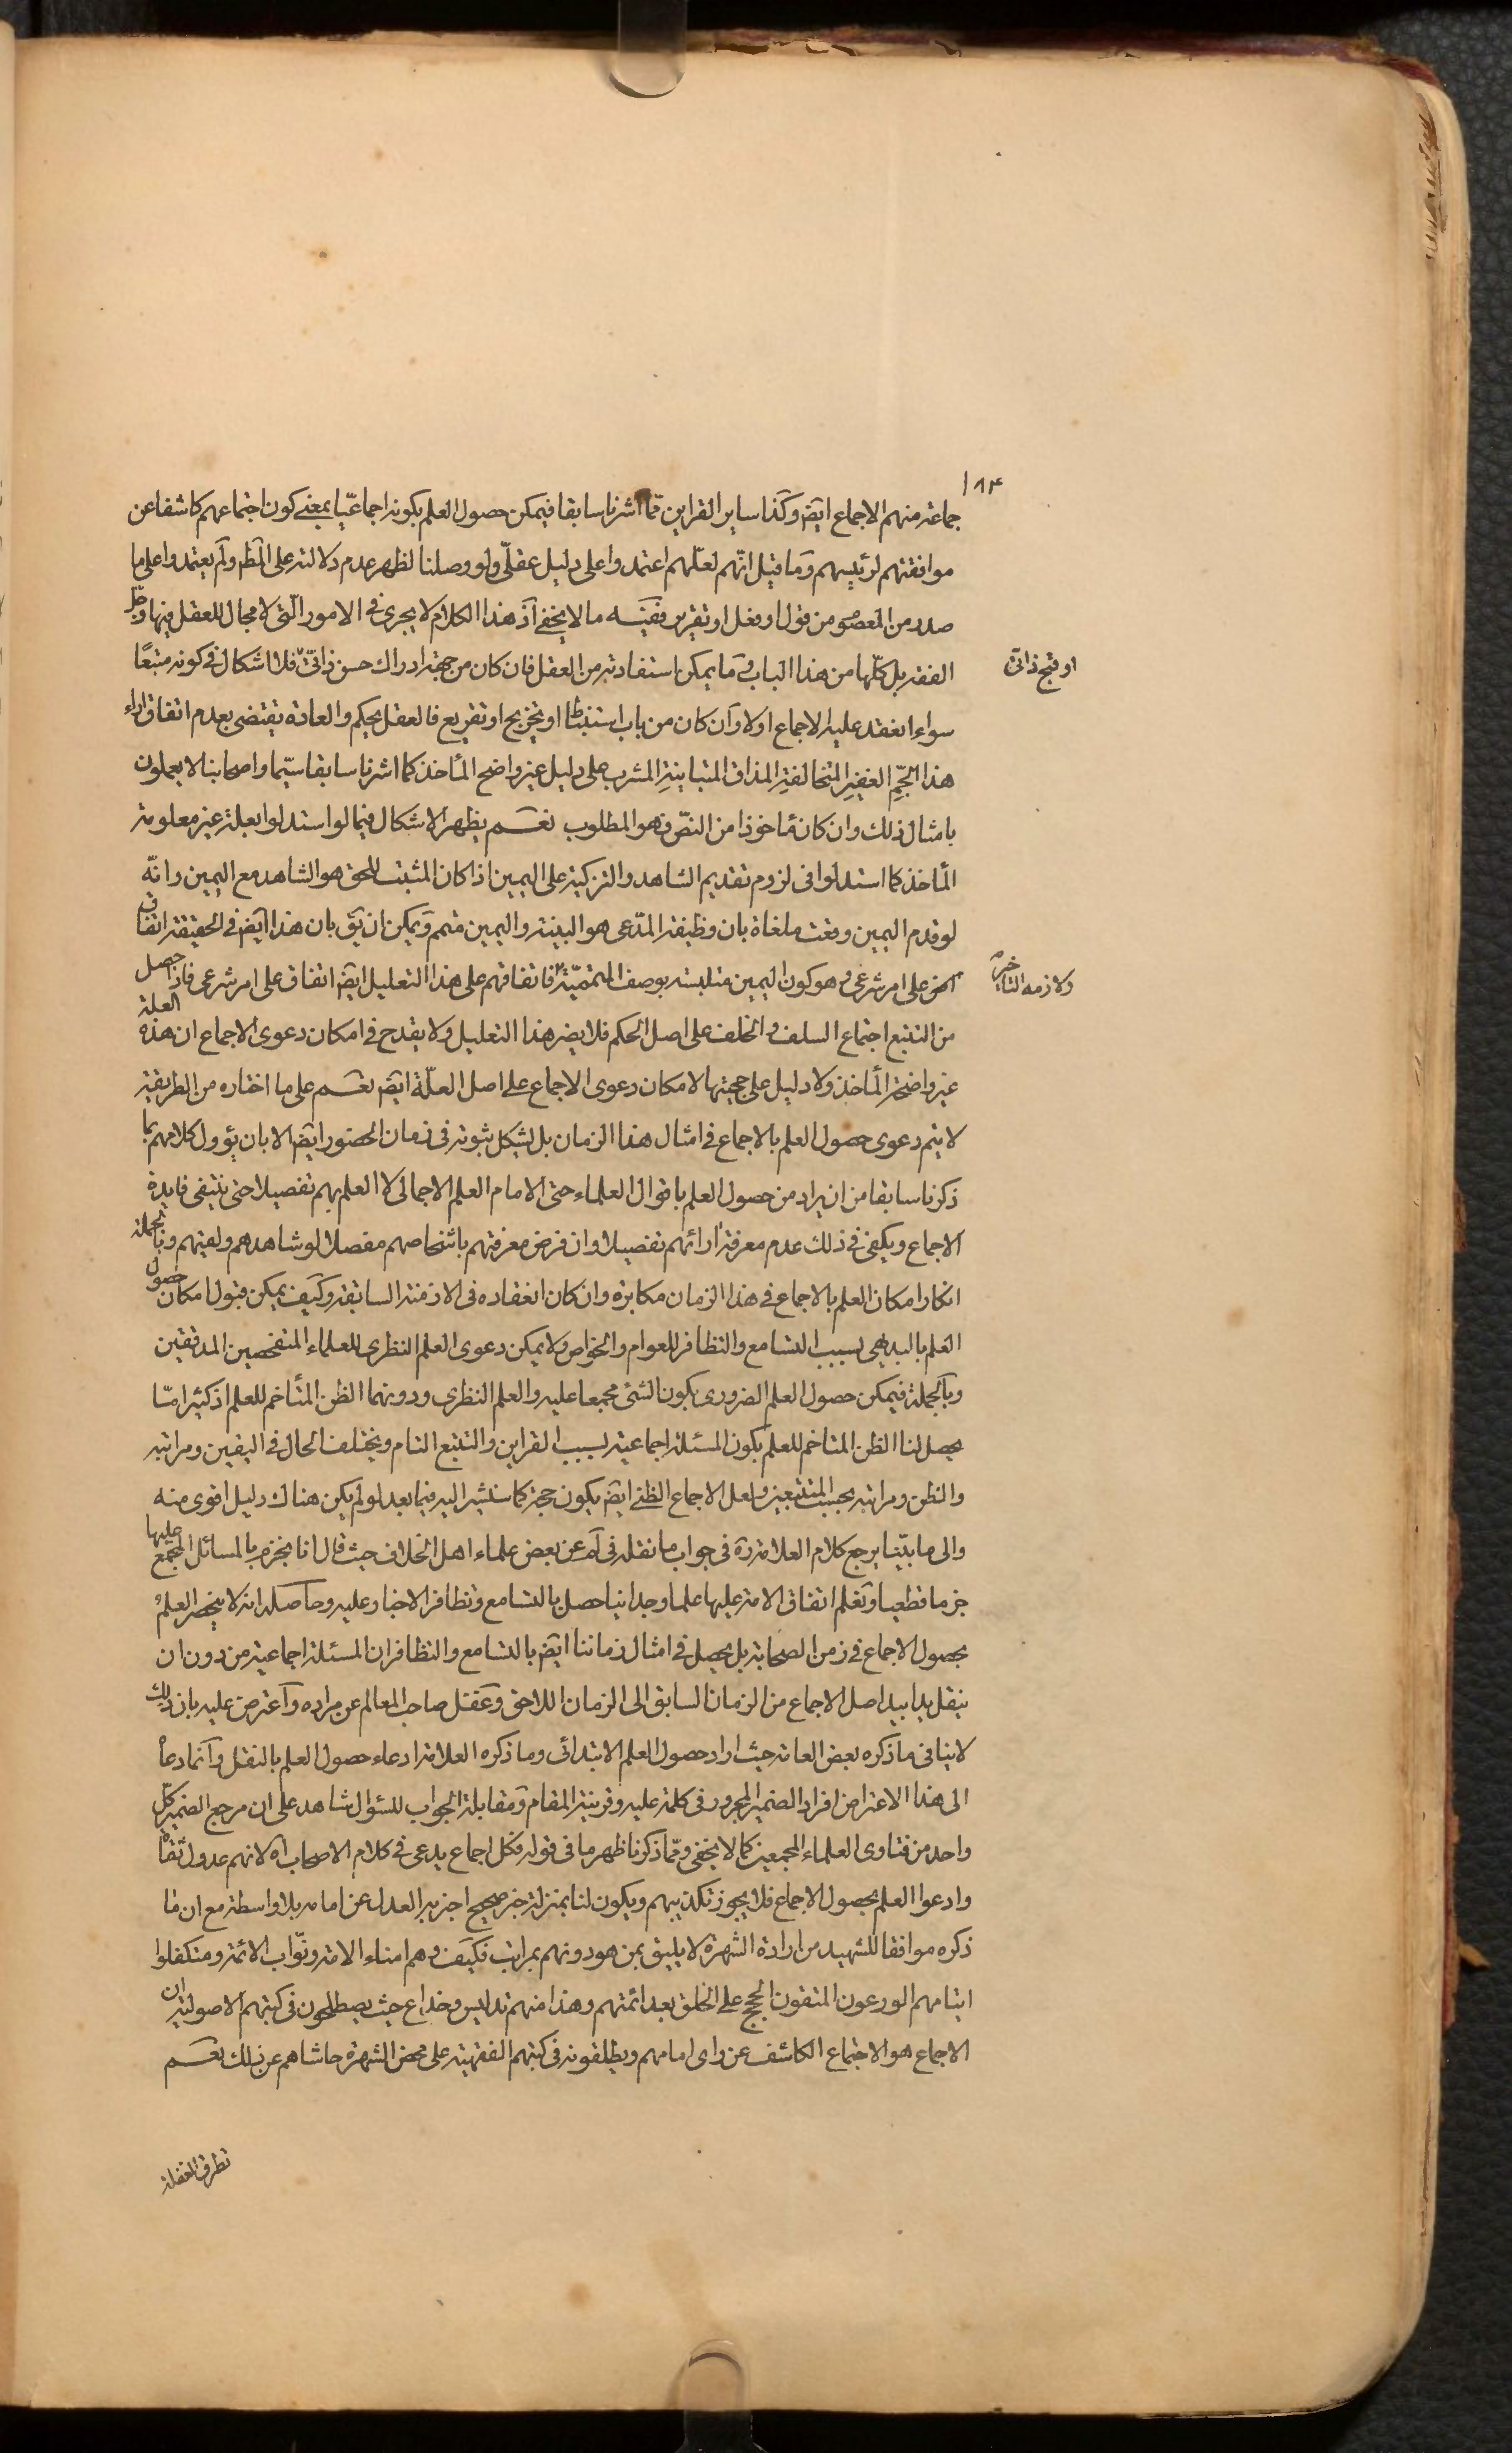 ١٨٤
جماعة منهم الاجماع ايضً وكذا ساير القراين مما اشرنا سابقا فيمكن حصول العلم بكونه اجماعيّا بمعنى كون اجتماعهم كاشفا عن
موافقتهم لرئيسهم وما قيل انّهم لعلّهم اعتمدوا على دليل عقلّى ولو وصلنا لظهر عدم دلالته على المظم ولم يعتمدوا على ما
صدر من المعصوم من قول او فعل او تقرير ففيه ما لا يخفى اذ هذا الكلام لا يجرى فى الامور التى لا مجال للعقل فيها وجلّ
الفقه بل كلّها من هذا الباب وما يمكن استفادته من العقل فان كان من جهة ادراك حسن ذاتىّ فلا اشكال فى كونه متبعًا
او قبح ذاتى
سواء انعقد عليه الاجماع اولا وان كان من باب استنباط او تخريج او تفريع فالعقل يحكم والعادة يقتضى بعدم اتفاق اراء
هذا الجمّ الغفير المتخالفة المذاق المتباينة المشرب على دليل غير واضح المأخذ كما اشرنا سابقا سيّما واصحابنا لا يعملون
بامثال ذلك وان كان مأخوذا من النصّ فهو المطلوب نعم يظهر الاشكال فيما لو استدلوا بعلة غير معلومة
المأخذ كما استدلوا فى لزوم تقديم الشاهد والتزكية على اليمين اذا كان المثبت للحق هو الشاهد مع اليمين وانّه
لو قدم اليمين وقعت ملغاة بان وظيفة المدّعى هو البينة واليمين متمم ويمكن ان يق بان هذا ايضً فى الحقيقة اتفاق
على امر شرعى وهو كون اليمين متلبسة بوصف المتمميّة فاتفاقهم على هذا التعليل ايضً اتفاق على امر شرعى فاذا حصل
ولازمه التاخير
من التتبع اجتماع السلف والخلف على اصل الحكم فلا يضر هذا التعليل ولا يقدح فى امكان دعوى الاجماع ان هذه العلة
غير واضحة المأخذ ولا دليل على حجيتها لامكان دعوى الاجماع على اصل العلّة ايضً نعم على ما اختاره من الطريقة
لا يتم دعوى حصول العلم بالاجماع فى امثال هذا الزمان بل يشكل ثبوته فى زمان الحضور ايضً الا بان يؤول كلامهم بما
ذكرنا سابقا من ان يراد من حصول العلم باقوال العلماء حتى الامام العلم الاجمالى لا العلم بهم تفصيلا حتى ينتفى فايدة
الاجماع ويكفى فى ذلك عدم معرفة ارائهم تفصيلا وان فرض معرفتهم باشخاصهم مفصلا لو شاهدهم ولقيهم وبالجملة
انكار امكان العلم بالاجماع فى هذا الزمان مكابرة وان كان انعقاده فى الازمنة السابقة وكيف يمكن قبول امكان حصول
العلم بالبديهى بسبب التسامع والتظافر للعوام والخواص ولا يمكن دعوى العلم النظرى للعلماء المتفحصين المدققين
وبالجملة فيمكن حصول العلم الضرورى بكون الشئ مجمعا عليه والعلم النظرى ودونهما الظن المتأخم للعلم اذ كثيرا مّا
يحصل لنا الظن المتاخم للعلم بكون المسئلة اجماعية بسبب القراين والتتبع التام ويختلف الحال فى اليقين ومراتبه
والظن ومراتبه بحسب المتتبعين ولعل الاجماع الظنى ايضً يكون حجة كما سنشير اليه فيما بعد لو لم يكن هناك دليل اقوى منه
والى ما بيّنا يرجع كلام العلامة ره فى جواب ما نقله فى لم عن بعض علماء اهل الخلاف حيث قال انا نجزم بالمسائل المجمع عليها
جزما قطعيا ونعلم اتفاق الامة عليها علما وجدانيا حصل بالتسامع وتظافر الاخبار عليه وحاصله انه لا ينحصر العلم
بحصول الاجماع فى زمن الصحابة بل يحصل فى امثال زماننا ايضً بالتسامع والتظافر ان المسئلة اجماعية من دون ان
ينقل يدا بيد اصل الاجماع من الزمان السابق الى الزمان اللاحق وغفل صاحب المعالم عن مراده واعترض عليه بان ذلك
لا ينافى ما ذكره بعض العامة حيث اراد حصول العلم الابتدائى وما ذكره العلامة ادعاء حصول العلم بالنقل وانما دعاه
الى هذا الاعتراض افراد الضمير المجرور فى كلمة عليه وقرينة المقام ومقابلة الجواب للسؤال شاهد على ان مرجع الضمير كل
واحد من فتاوى العلماء المجمعين كما لا يخفى وممّا ذكرنا ظهر ما فى قوله فكل اجماع يدعى فى كلام الاصحاب اه لانهم عدول ثقاة
وادعوا العلم بحصول الاجماع فلا يجوز تكذيبهم ويكون لنا بمنزلة خبر صحيح اخبر به العدل عن امامه بلا واسطة مع ان ما
ذكره موافقا للشهيد من ارادة الشهرة لا يليق بمن هو دونهم بمراتب فكيف وهم امناء الامة ونوّاب الائمة ومتكفلوا
ايتامهم الورعون المتقون الحجج على الخلق بعد ائمتهم وهذا منهم تدليس وخداع حيث يصطلحون فى كتبهم الاصولية ان
الاجماع هو الاجتماع الكاشف عن راى امامهم ويطلقونه فى كتبهم الفقهية على محض الشهرة حاشاهم عن ذلك نعم
تطرق الغفلة